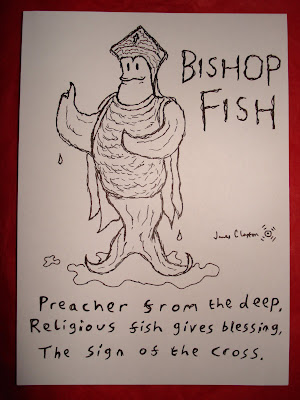 BISHOP
FISH
James Clayton
Preacher from the deep.
Religious fish gives blessing,
The sign of the cross.